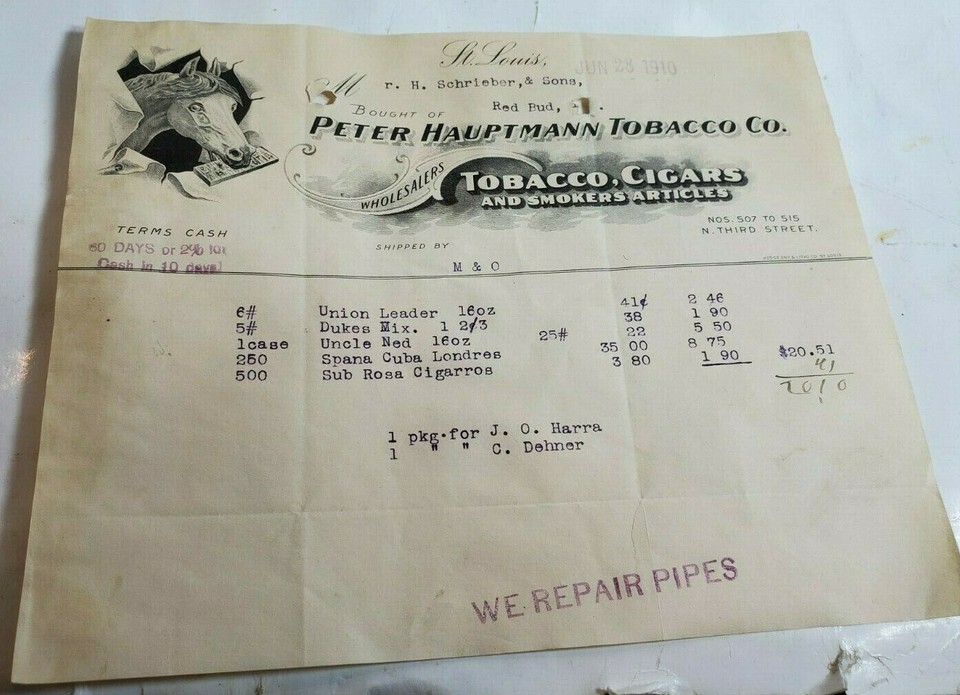 St. Louis, JUN 23 1910
M r. H. Schrieber,& Sons,
Red Bud,
BOUGHT OF
PETER HAUPTMANN TOBACCO CO.
WHOLESALERS
TOBACCO, CIGARS
AND SMOKERS ARTICLES
NOS. 507 TO 515
N. THIRD STREET.
TERMS CASH
60 DAYS or 2% for
Cash in 10 days!
SHIPPED BY
M & O
6# Union Leader 16oz 41¢ 2 46
5# Dukes Mix. 1 2/3 38 1 90
1case Uncle Ned 16oz 25# 22 5 50
250 Spana Cuba Londres 35 00 8 75
500 Sub Rosa Cigarros 3 80 1 90 $20.51
41
2010
1 pkg.for J. O. Harra
1 " " C. Dehner
WE REPAIR PIPES